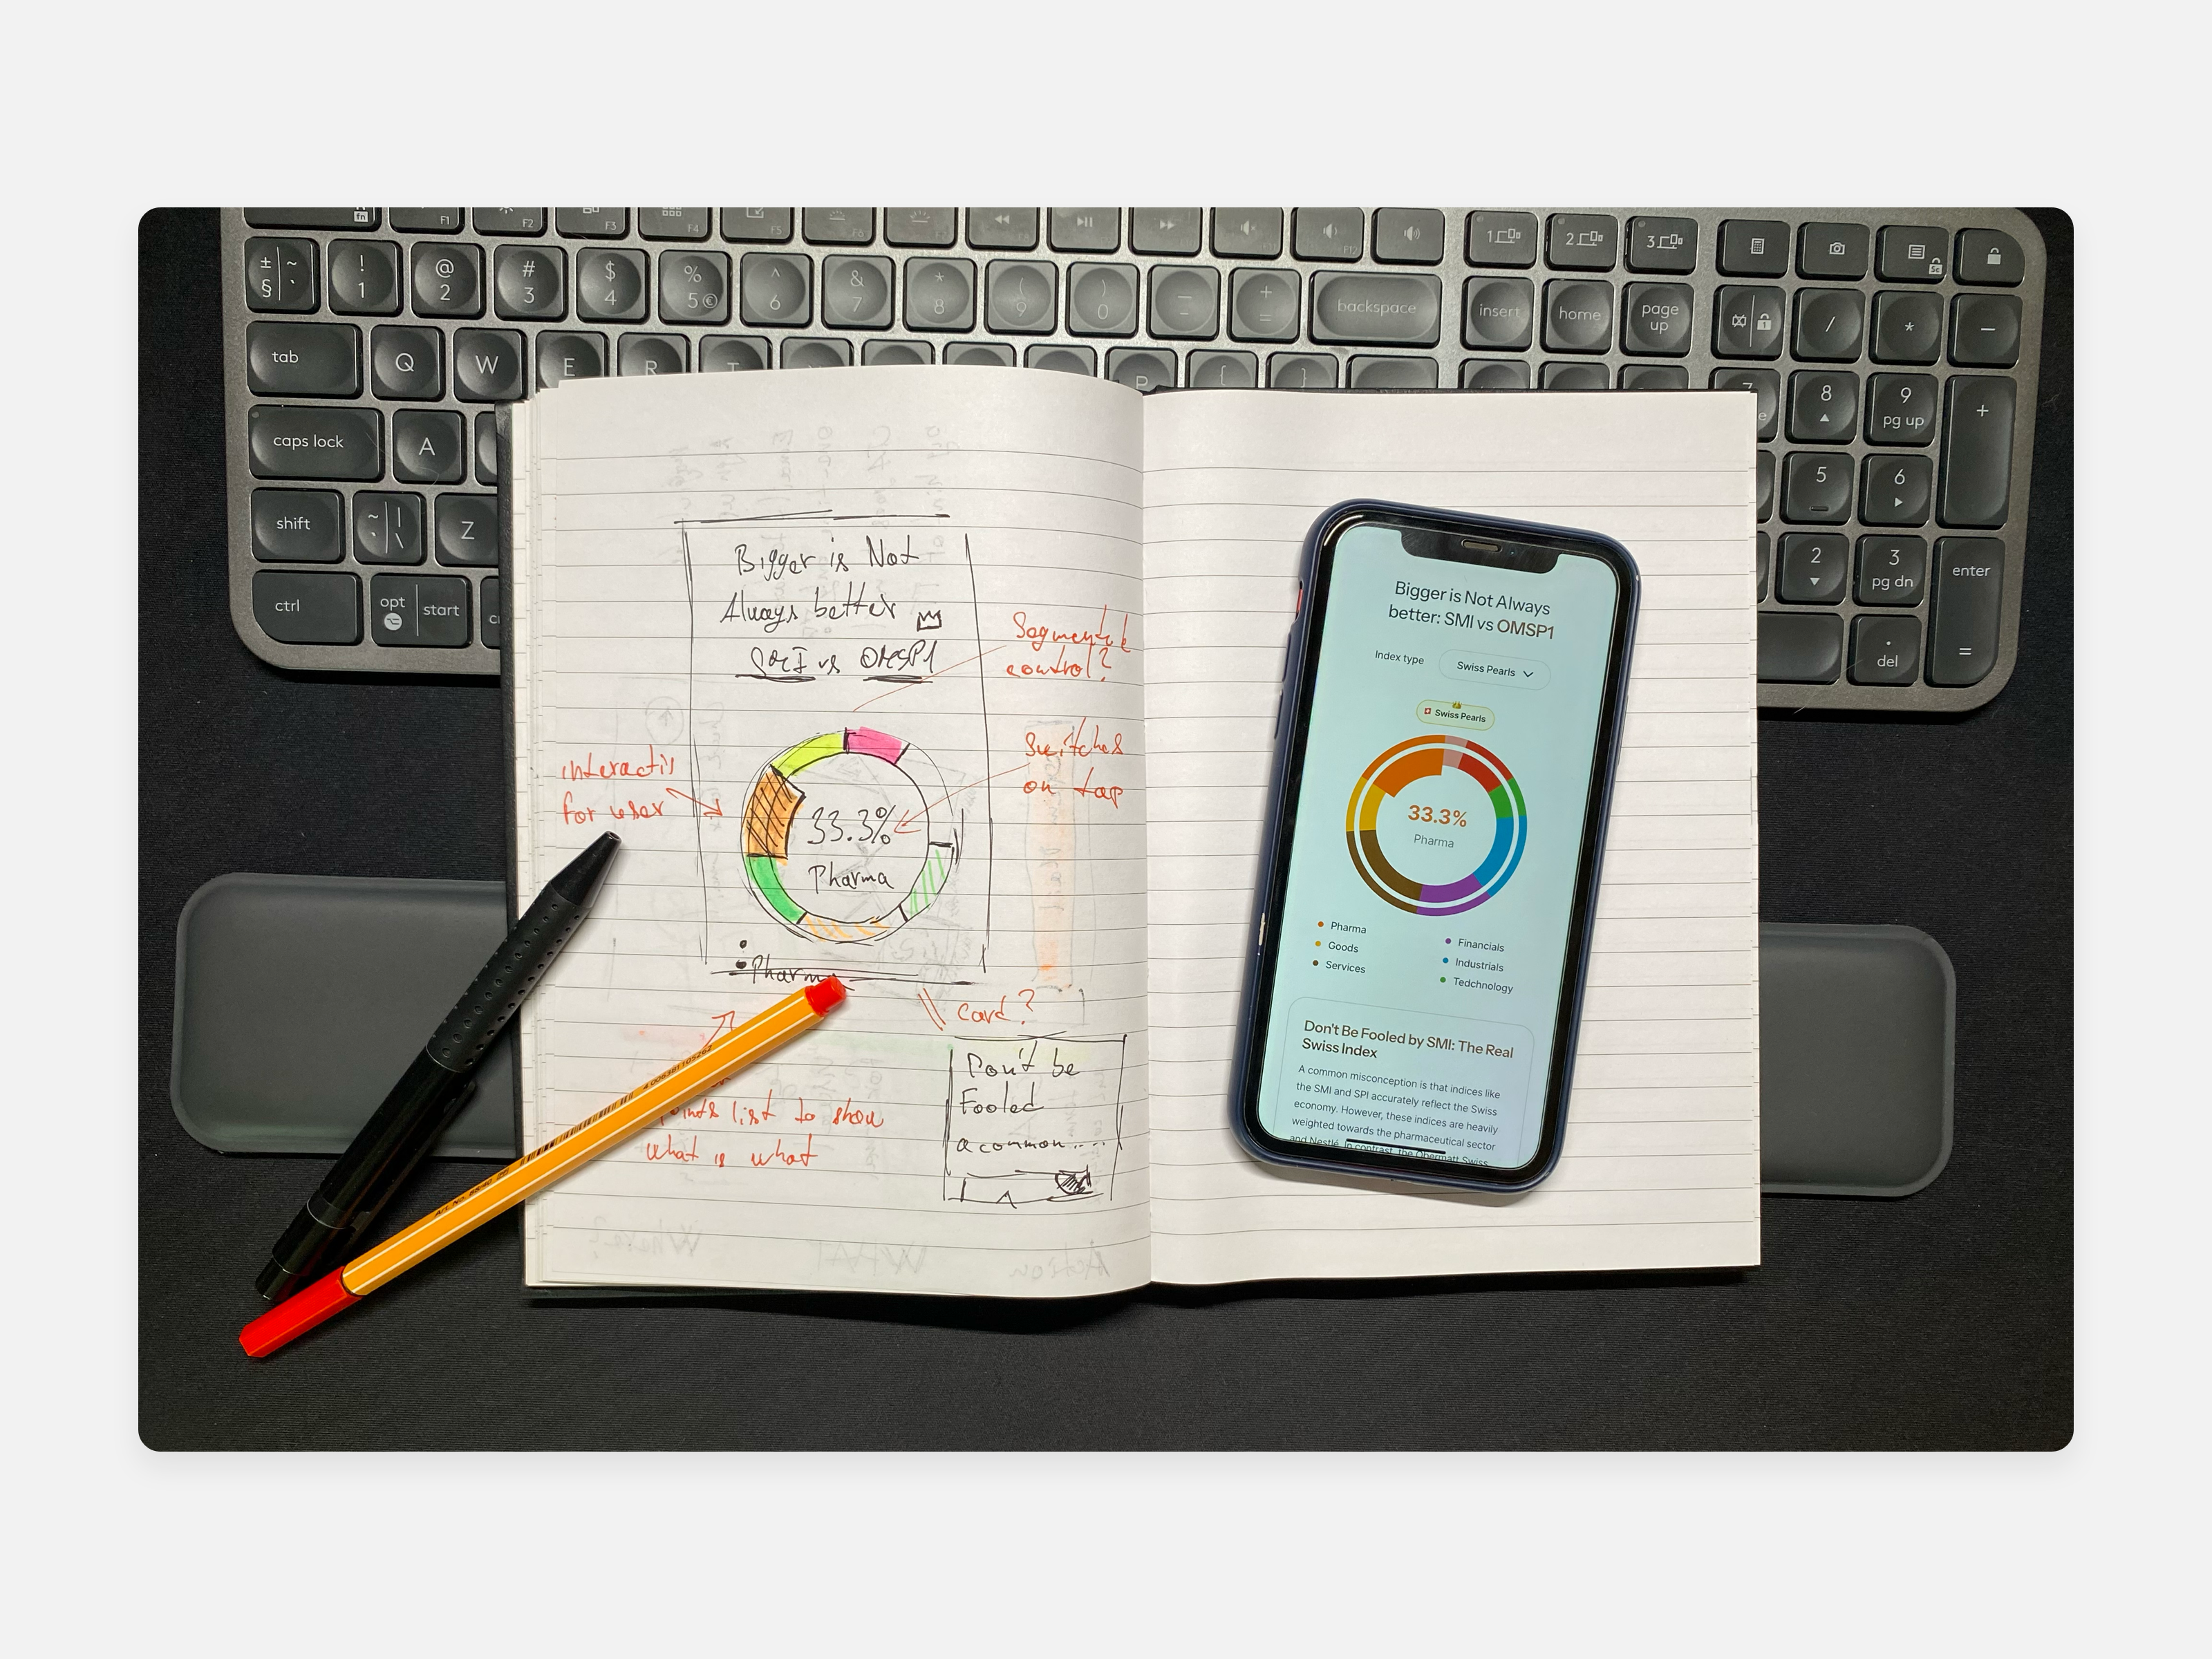 fn
F1
F2
F3
F4
F5
F6
F12
± ~
§ `
!
1
@
2
#
3
$
4
%
5 €
^
6
&
7
*
8
(
9
)
0
_
-
+
=
backspace
1
2
3
insert
home
page
up
/
*
−
tab
Q
W
E
R
T
P
{
}
7
8
9
pg up
+
caps lock
A
5
6
shift
~ |
` \
Z
2
3
pg dn
enter
ctrl
opt
start
.
del
=
Bigger is Not
Always better
SMI vs OMSP1
Segmented
control?
Switches
on tap
interactiv
for user
33.3%
Pharma
Pharma
card?
points list to show
what is what
Don't be
Fooled
a common....
Bigger is Not Always
better: SMI vs OMSP1
Index type
Swiss Pearls
Swiss Pearls
33.3%
Pharma
Pharma
Goods
Services
Financials
Industrials
Tedchnology
Don't Be Fooled by SMI: The Real
Swiss Index
A common misconception is that indices like
the SMI and SPI accurately reflect the Swiss
economy. However, these indices are heavily
weighted towards the pharmaceutical sector
and Nestlé. In contrast, The Obermatt Swiss